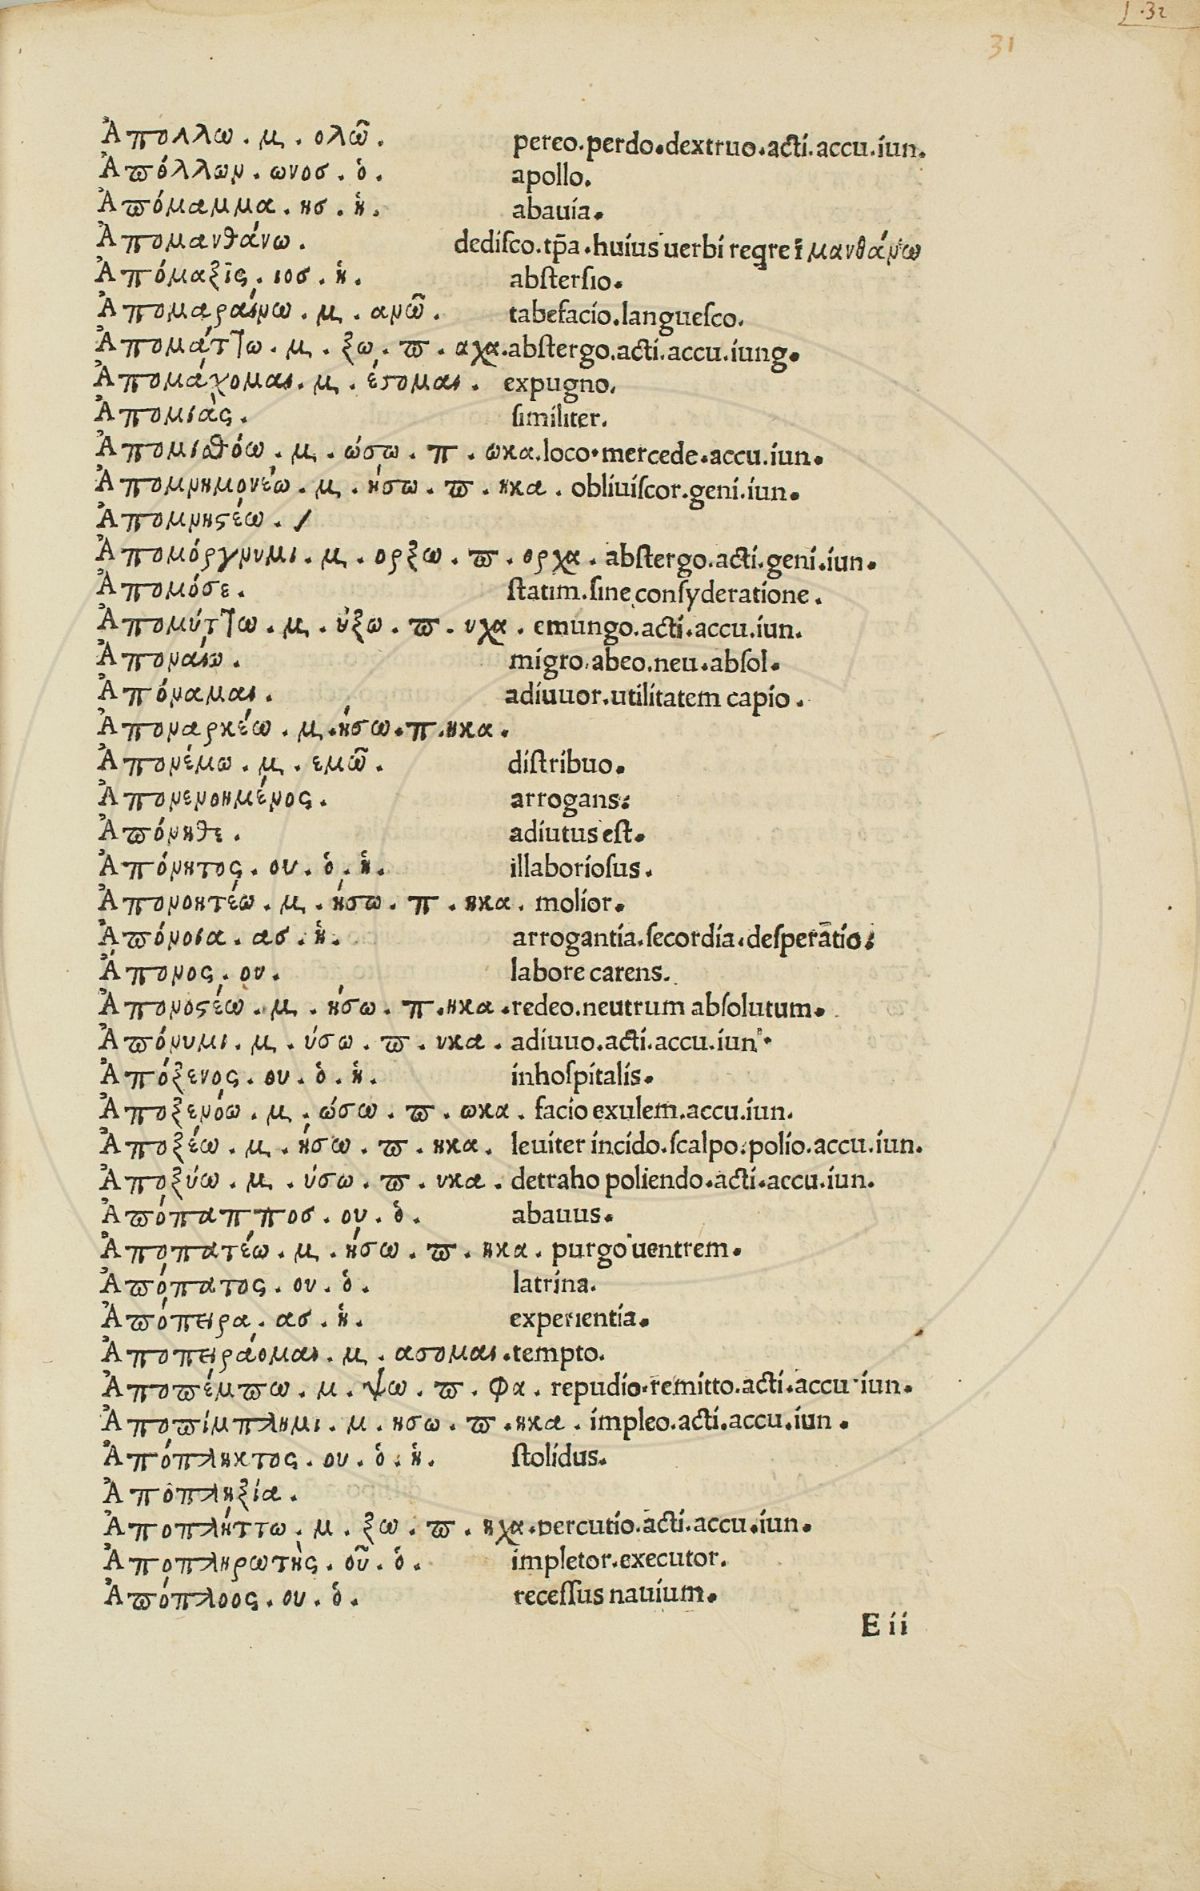 L.32
31
Ἀπολλω. μ. ολῶ. pereo. perdo. dextruo. acti. accu. iun.
Ἀπόλλων. ωνοσ. ὁ. apollo.
Ἀπόμαμμα. ησ. ἡ. abauia.
Ἀπομανθάνω. dedisco. tp̄a. huius uerbi reqre ī μανθάνω
Ἀπόμαξῑς. ιοσ. ἡ. abstersio.
Ἀπομαραίνω. μ. ανῶ. tabefacio. languesco.
Ἀπομάττω. μ. ξω. π. αχα. abstergo. acti. accu. iung.
Ἀπομάχομαι. μ. έσομαι. expugno.
Ἀπομιὰς. similiter.
Ἀπομισθόω. μ. ώσω. π. ωκα. loco. mercede. accu. iun.
Ἀπομνημονέω. μ. ήσω. π. ηκα. obliuiscor. geni. iun.
Ἀπομνηστέω. /
Ἀπομόργνυμι. μ. ορξω. π. ορχα. abstergo. acti. geni. iun.
Ἀπομόσε. statim. sine consyderatione.
Ἀπομύττω. μ. ύξω. π. υχα. emungo. acti. accu. iun.
Ἀποναίω. migro. abeo. neu. absol.
Ἀπόναμαι. adiuuor. utilitatem capio.
Ἀποναρκέω. μ. ήσω. π. ηκα.
Ἀπονέμω. μ. εμῶ. distribuo.
Ἀπονενοημένος. arrogans:
Ἀπόνηθε. adiutus est.
Ἀπόνητος. ου. ὁ. ἡ. illaboriosus.
Ἀπονοητέω. μ. ήσω. π. ηκα. molior.
Ἀπόνοια. ασ. ἡ. arrogantia. secordia. desperātio:
Ἄπονος. ου. labore carens.
Ἀπονοστέω. μ. ήσω. π. ηκα. redeo. neutrum absolutum.
Ἀπόνυμι. μ. ύσω. π. υκα. adiuuo. acti. accu. iun.
Ἀπόξενος. ου. ὁ. ἡ. inhospitalis.
Ἀποξενόω. μ. ώσω. π. ωκα. facio exulem. accu. iun.
Ἀποξέω. μ. ήσω. π. ηκα. leuiter incido. scalpo. polio. accu. iun.
Ἀποξύω. μ. ύσω. π. υκα. detraho poliendo. acti. accu. iun.
Ἀπόπαππος. ου. ὁ. abauus.
Ἀποπατέω. μ. ήσω. π. ηκα. purgo uentrem.
Ἀπόπατος. ου. ὁ. latrina.
Ἀπόπειρα. ασ. ἡ. experientia.
Ἀποπειράομαι. μ. ασομαι. tempto.
Ἀποπέμπω. μ. ψω. π. φα. repudio. remitto. acti. accu. iun.
Ἀποπίμπλημι. μ. ησω. π. ηκα. impleo. acti. accu. iun.
Ἀπόπληκτος. ου. ὁ. ἡ. stolidus.
Ἀπόπληξία.
Ἀποπλήττω. μ. ξω. π. ηχα. percutio. acti. accu. iun.
Ἀποπληρωτὴς. οῦ. ὁ. impletor. executor.
Ἀπόπλοος. ου. ὁ. recessus nauium.
E ii